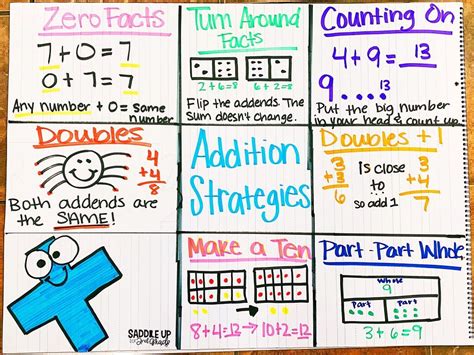 Zero Facts
7+0=7
0+7=7
Any number + 0 = Same number
Turn Around
Facts
2+6=8
6+2=8
Flip the addends. The
Sum doesn't change.
Counting On
4+9= 13
9....13
Put the big number
in your head & count up.
Doubles
4
+4
8
Both addends are
the SAME!
Addition
Strategies
Doubles +1
3
+3
6
is close
to
so add 1
3
+4
7
SADDLE UP
for 2nd Grade
Make a Ten
8+4=12 → 10+2=12
Part-Part Whole
Whole
9
Part
Part
3+6=9